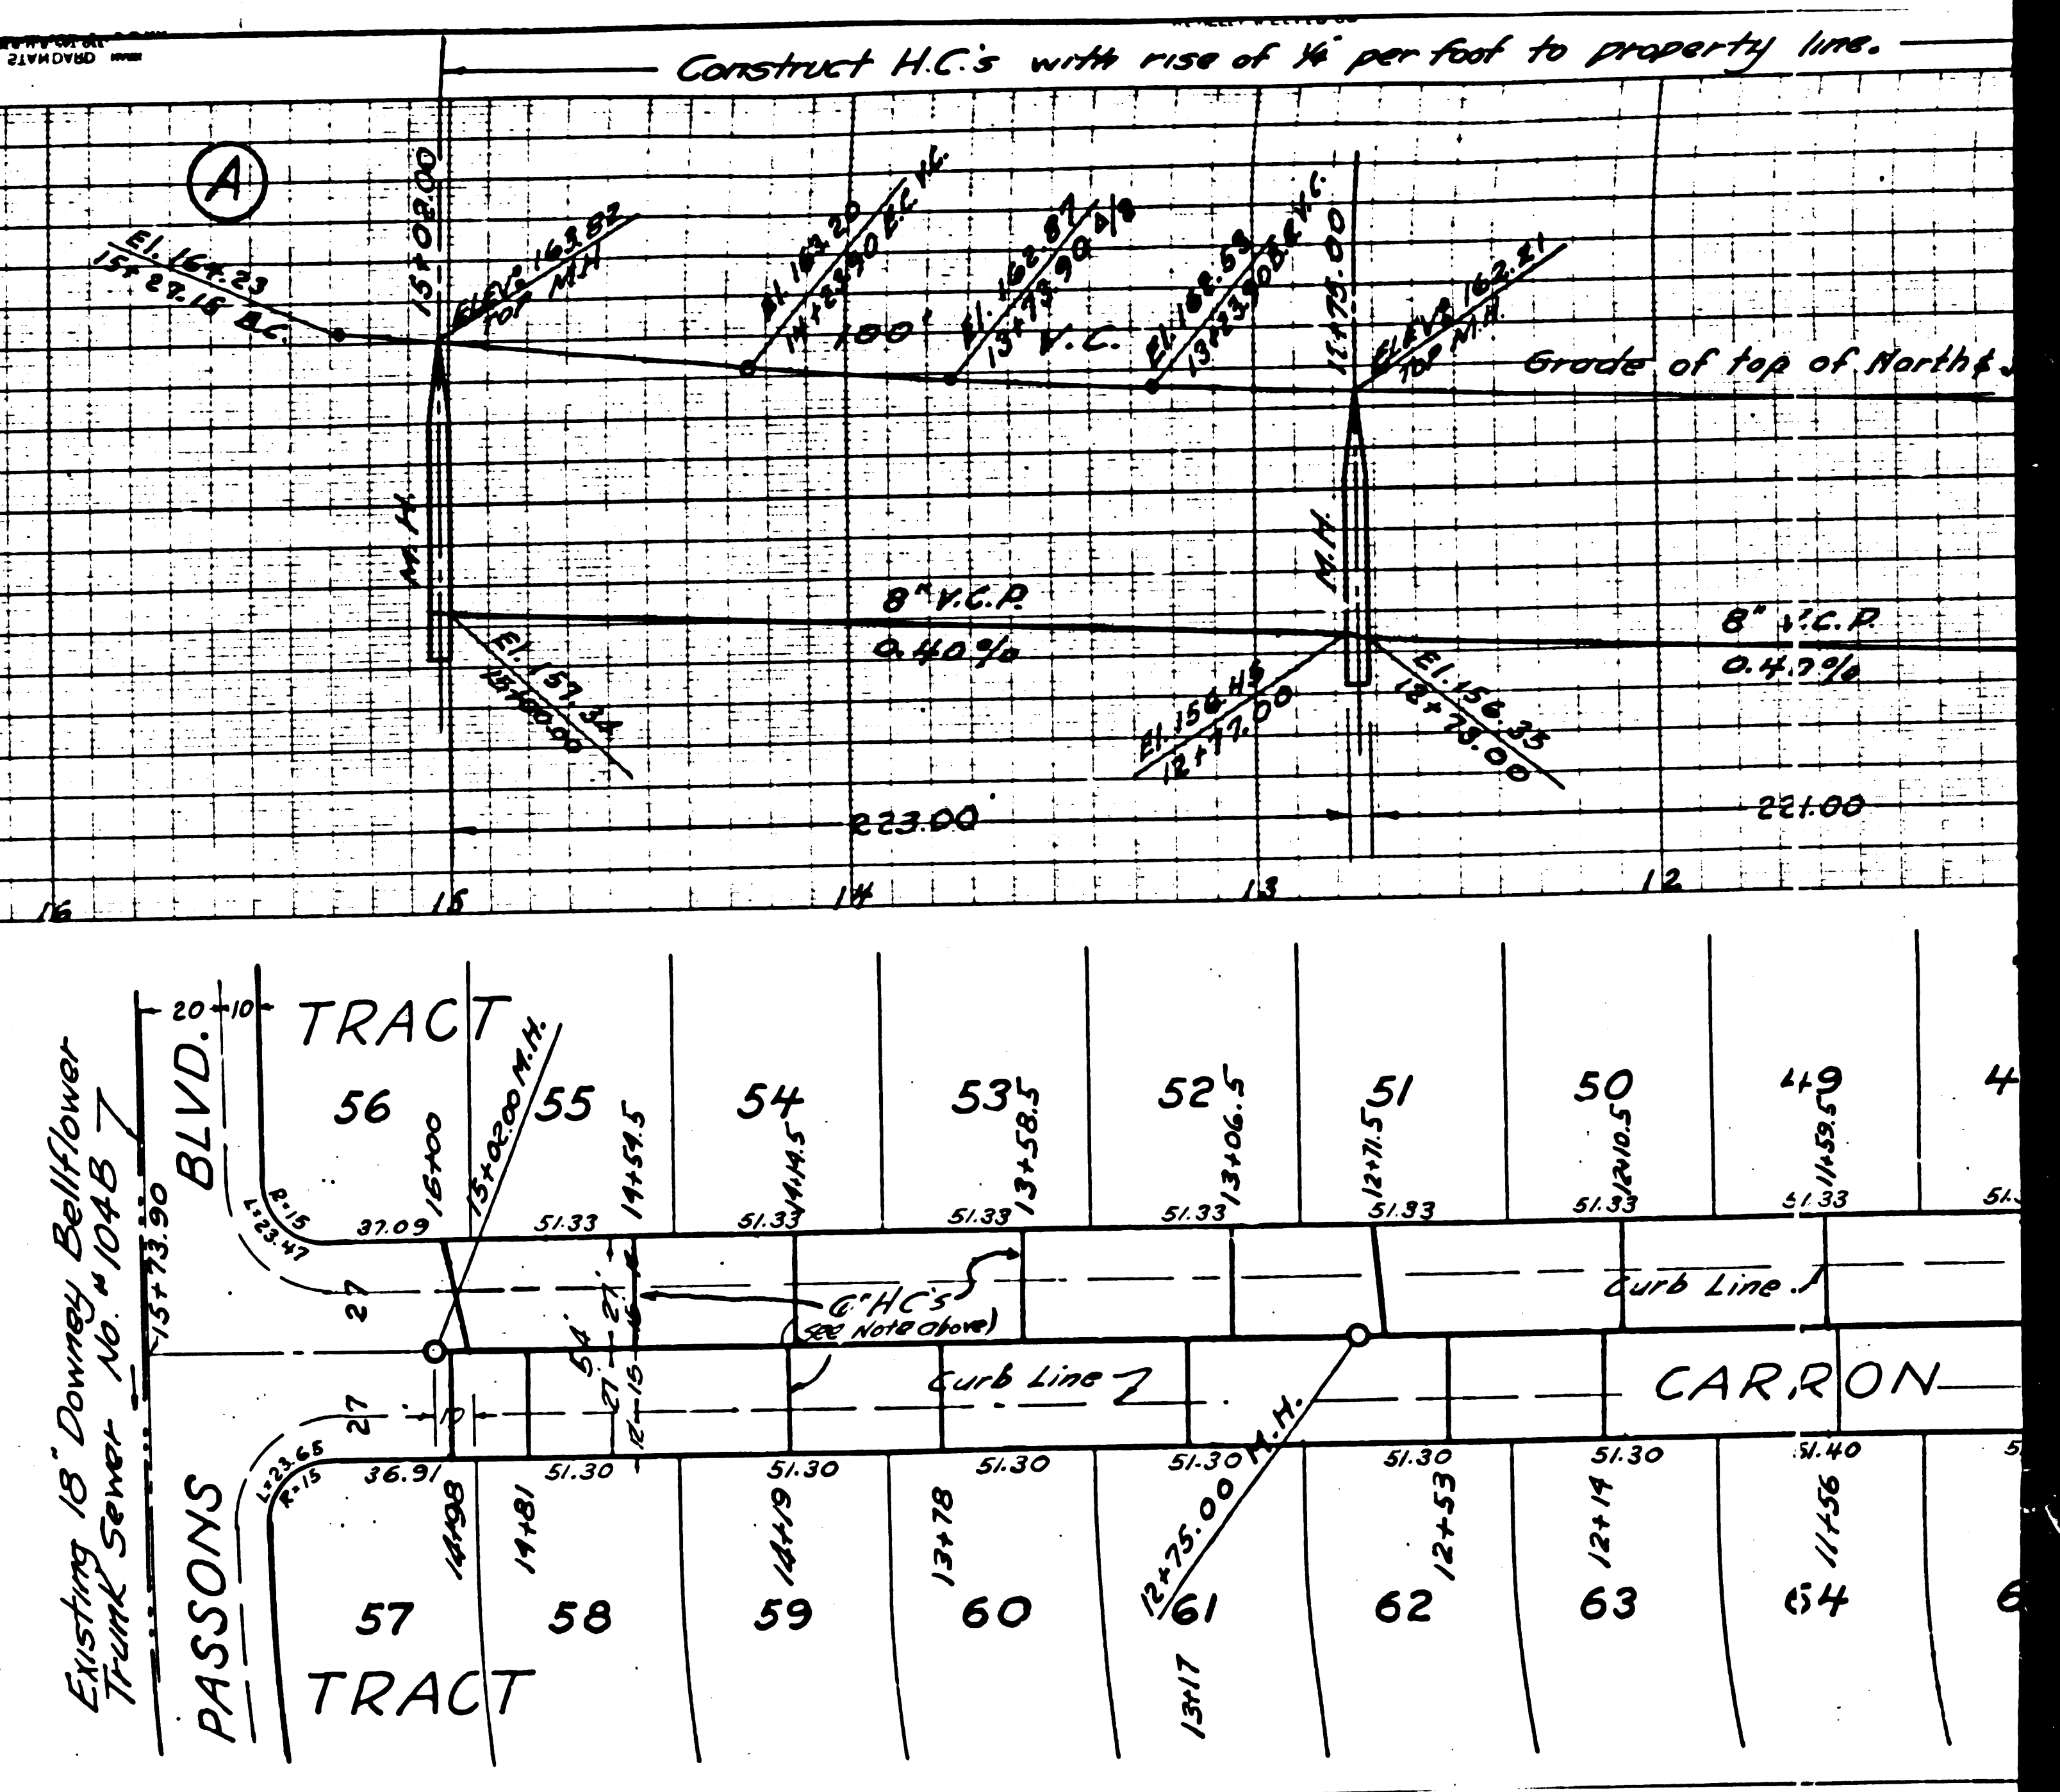 STANDARD
Construct H.C.'s with rise of ¼" per foot to property line.
A
El. 164.23
15+27.15 B.C.
15+02.00
Elev. 163.82
Top M.H.
El. 163.20
14+23.90 V.C.
100' V.C.
El. 162.87
13+73.90
El. 162.53
13+23.90 V.C.
12+75.00
Elev. 162.21
Top M.H.
Grade of top of North &
M.H.
M.H.
8" V.C.P.
0.40%
8" V.C.P.
0.47%
El. 157.34
15+00.00
El. 156.45
12+77.00
El. 156.35
12+73.00
223.00
221.00
16
15
14
13
12
20
10
TRACT
BLVD.
Existing 18" Downey Bellflower
Trunk Sewer No. # 104B
15+73.90
56
55
54
53
52
51
50
49
4
15+00
15+02.00 M.H.
14+54.5
14+14.5
13+58.5
13+06.5
12+71.5
12+10.5
11+59.5
R=15
L=23.47
37.09
51.33
51.33
51.33
51.33
51.33
51.33
51.33
51.
27
27
54'
27
12
15
6" HC's
(See Note above)
Curb Line
Curb Line
27
10
27
12
15
CARRON
M.H.
12+75.00
L=23.65
R=15
36.91
51.30
51.30
51.30
51.30
51.30
51.30
51.40
14+98
14+81
14+19
13+78
12+53
12+14
11+56
PASSONS
57
58
59
60
61
62
63
64
6
13+17
TRACT